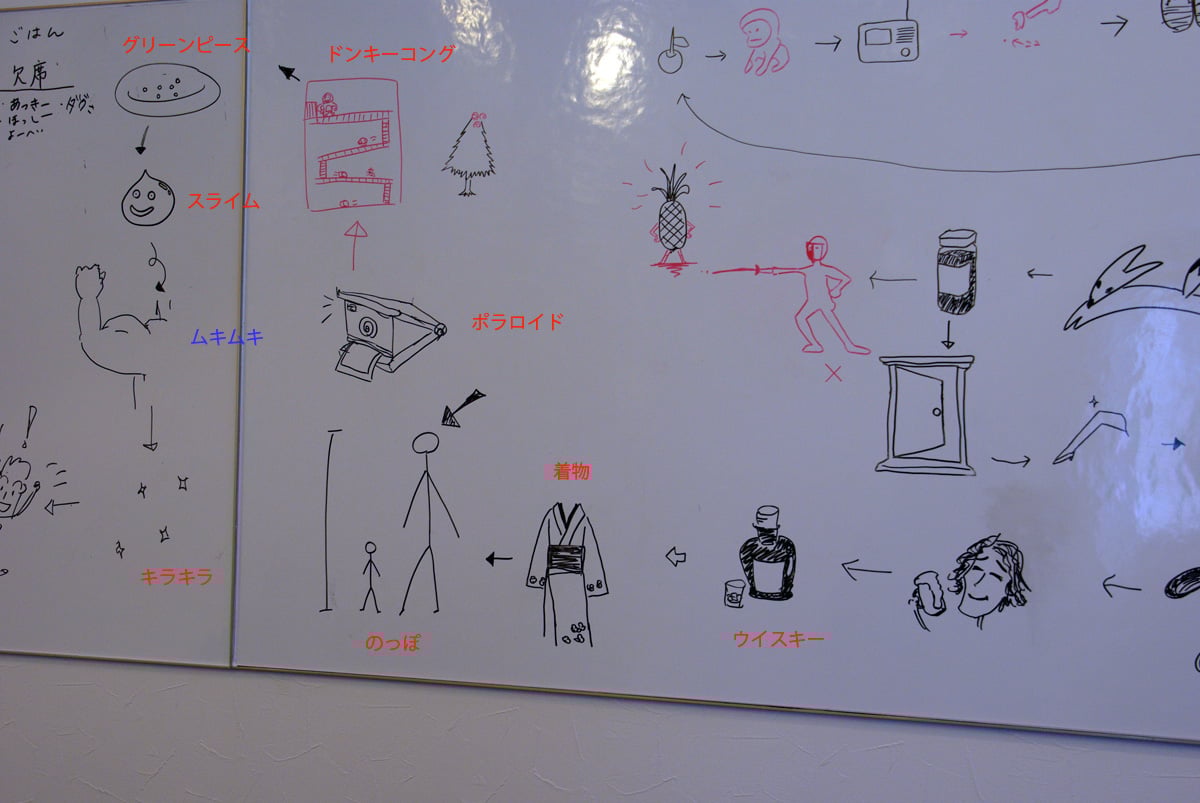 ごはん
欠席
・あっきー ・ダグ
・ほっしー
よーへい
グリーンピース
スライム
ムキムキ
キラキラ
ドンキーコング
ポラロイド
のっぽ
着物
ウイスキー
ココ